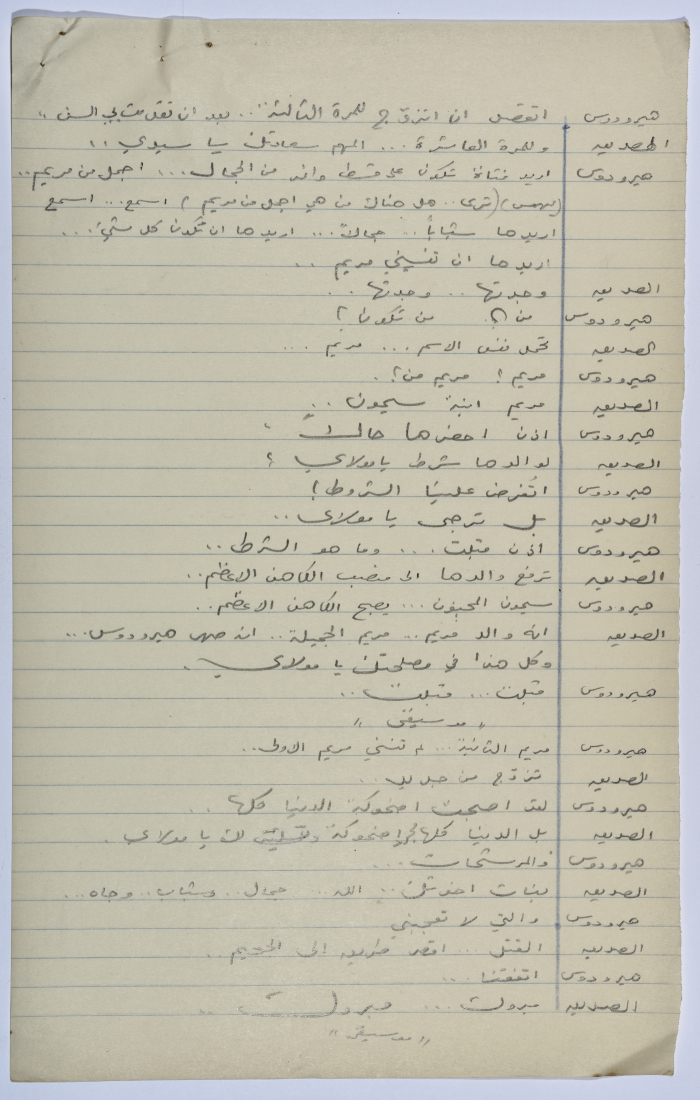 هيرودوس اتقصد ان اتزوج للمرة الثالثة .. بعد ان تقدمت بي السن ..
الصديق وللمرة العاشرة ... المهم سعادتك يا سيدي ..
هيرودوس اريد فتاة تكون على قسط وافر من الجمال ... اجمل من مريم ..
(يهمس) (ترى .. هل هناك من هي اجمل من مريم) اسمع ... اسمع
اريدها شباباً .. جمالاً ... اريدها ان تكون كل شيء ...
اريدها ان تنسيني مريم ..
الصديق وجدتها .. وجدتها ..
هيرودوس من ؟. من تكون ؟
الصديق تحمل نفس الاسم ... مريم ...
هيرودوس مريم ؟ مريم من ؟.
الصديق مريم ابنة سيمون ..
هيرودوس اذن احضرها حالاً
الصديق لوالدها شرط يا مولاي ؟
هيرودوس اتُفرض علينا الشروط !
الصديق بل ترجى يا مولاى ..
هيرودوس اذن قبلت ... وما هو الشرط ..
الصديق ترفع والدها الى منصب الكاهن الاعظم ..
هيرودوس سيمون المجنون ... يصبح الكاهن الاعظم ..
الصديق انه والد مريم .. مريم الجميلة .. انه صهر هيرودوس ...
وكل هذا في مصلحتك يا مولاي .
هيرودوس قبلت ... قبلت ..
" موسيقى "
هيرودوس مريم الثانية ... لم تنسني مريم الاولى ..
الصديق تزوج من جديد ..
هيرودوس لقد اصبحت اضحوكة الدنيا كلها ..
الصديق بل الدنيا كلها اضحوكة لك يا مولاي .
هيرودوس والمرشحات ...
الصديق بنات اخوتك .. الله ... جمال .. وشباب .. وجاه ...
هيرودوس والتي لا تعجبني
الصديق القتل ... اقصر طريق الى الجحيم ..
هيرودوس اتفقنا ...
الصديق مبروك ... مبروك ..
" موسيقى "